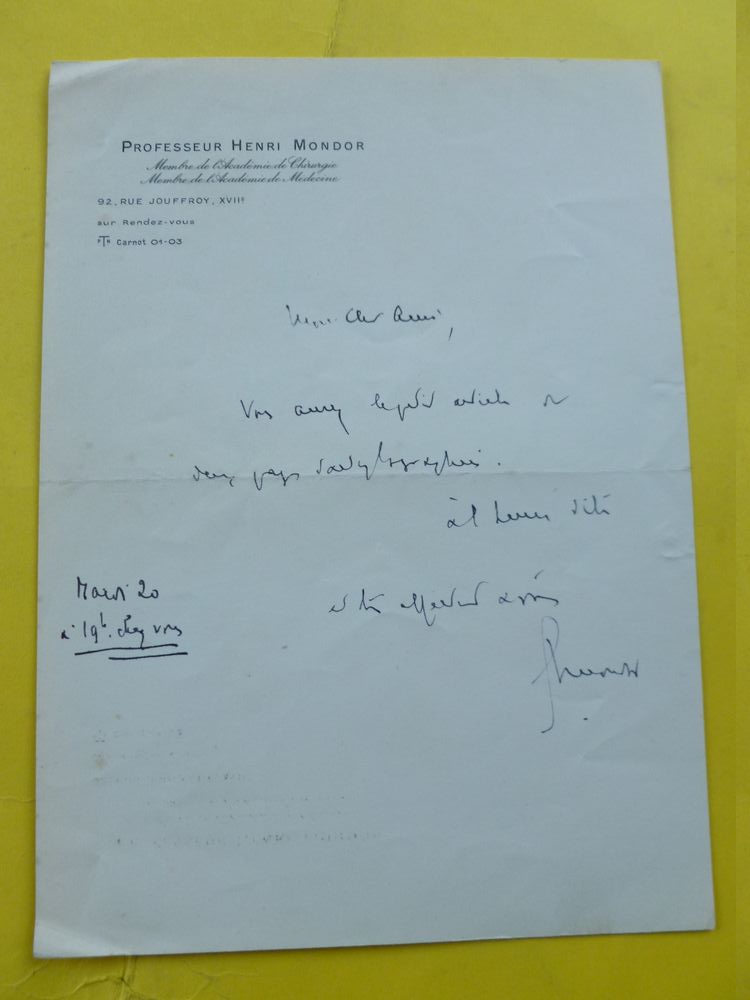 PROFESSEUR HENRI MONDOR
Membre de l'Académie de Chirurgie
Membre de l'Académie de Médecine
92, RUE JOUFFROY, XVIIe
sur Rendez-vous
Carnot 01-03
Mon Cher Ami,
Vous aurez le petit article
deux pages dactylographiées.
à l'heure dite
Mardi 20
à 19h. chez vous
et très affectueusement à vous
HMondor